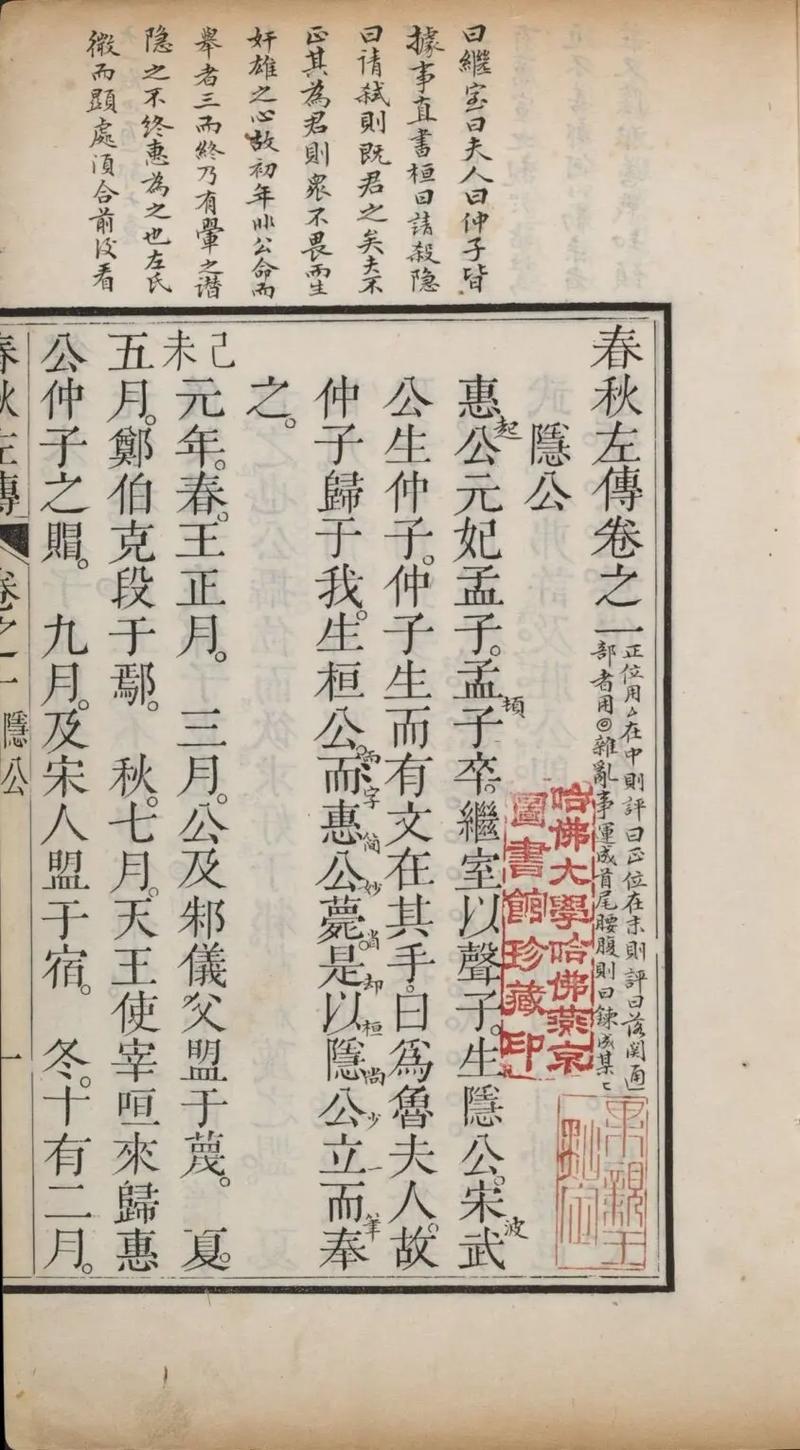 曰繼室曰夫人曰仲子皆
據事直書桓曰請殺隐
曰請弑則既君之矣夫不
正其為君則衆不畏而生
奸雄之心故初年非公命而
舉者三而終乃有翬之譖
隐之不終惠為之也左氏
微而顕處湏合前後看
春秋左傳卷之一
正位用厶在中則評曰正位在末則評曰落関通
部者用◎雜亂事運成首尾腰腹則曰錬成某〻
哈佛大學哈佛燕京
圖書館珍藏印
隱公
惠公元妃孟子。孟子卒。繼室以聲子。生隱公。宋武
起
頓
波
公生仲子。仲子生而有文在其手。曰爲魯夫人。故
仲子歸于我。生桓公。而惠公薨。是以隱公立而奉
而字簡妙省却桓尚少一筆
之。
己未
元年。春。王正月。 三月。公及邾儀父盟于蔑。 夏。
五月。鄭伯克段于鄢。 秋。七月。天王使宰咺來歸惠
公仲子之賵。 九月。及宋人盟于宿。 冬。十有二月。
春秋左傳 卷之一 隱公 一